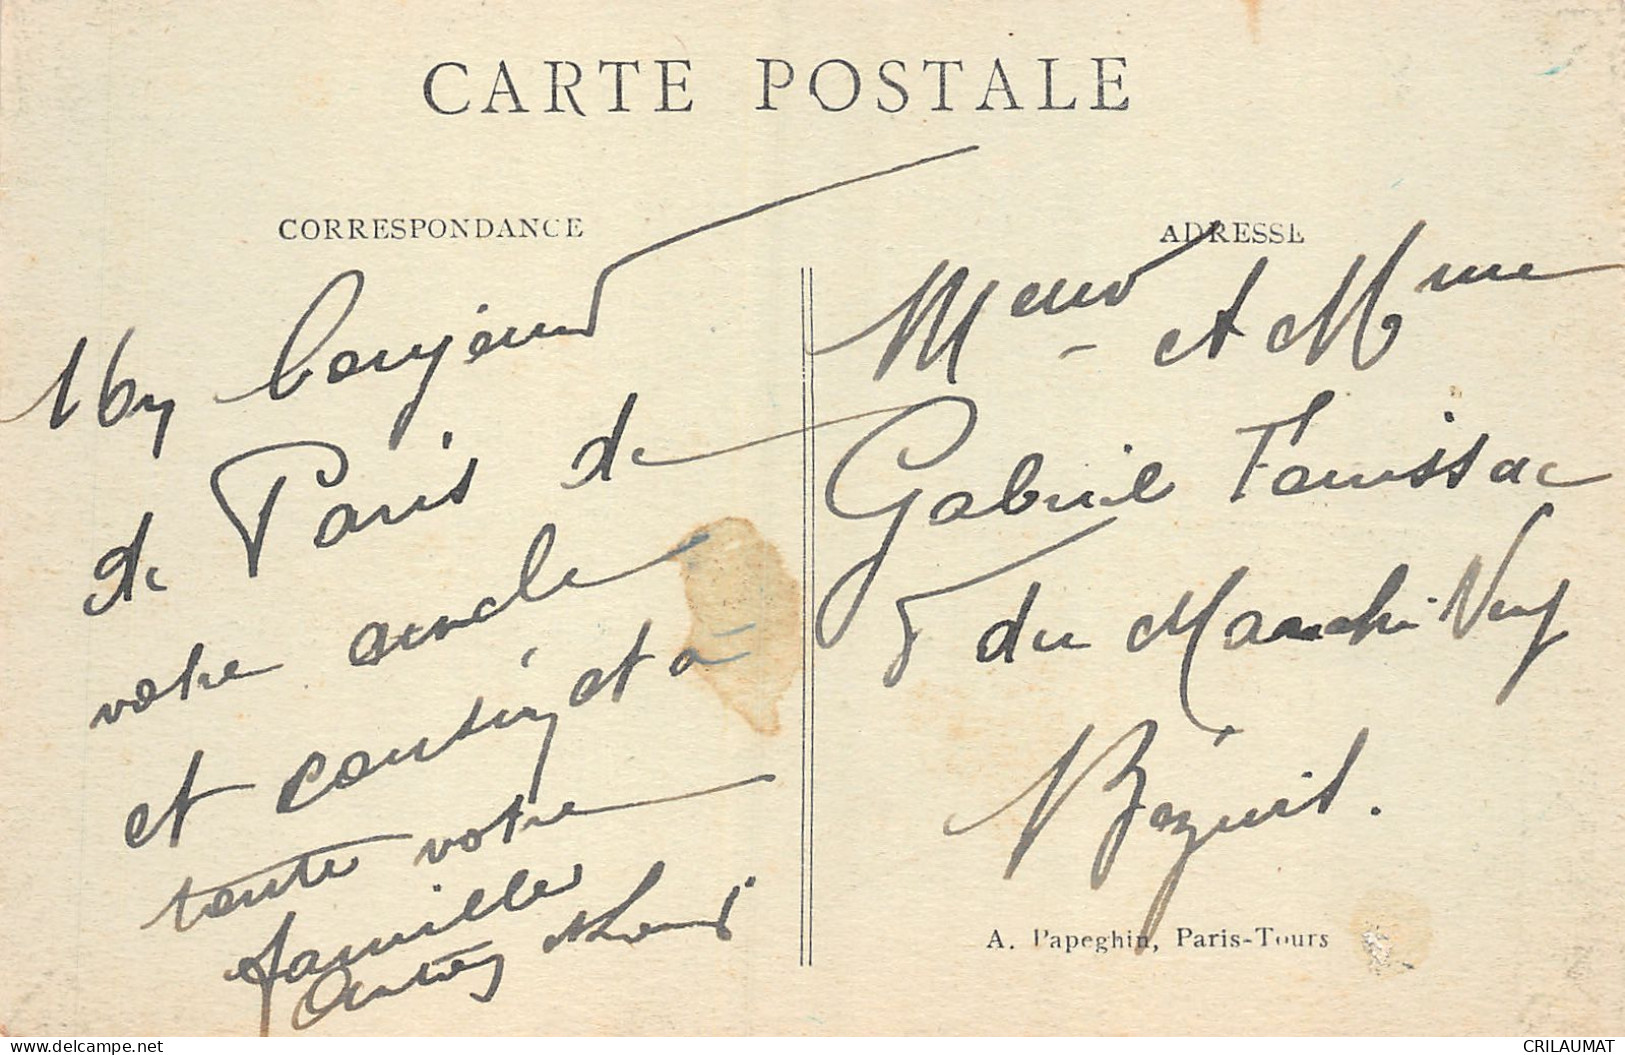 CARTE POSTALE
CORRESPONDANCE
bonjour
de Paris de
votre oncle
et cousin, et à
toute votre
famille
ADRESSE
et Mme
Gabriel
8 du Marché Neuf
A. Papeghin, Paris-Tours
delcampe.net
CRILAUMAT